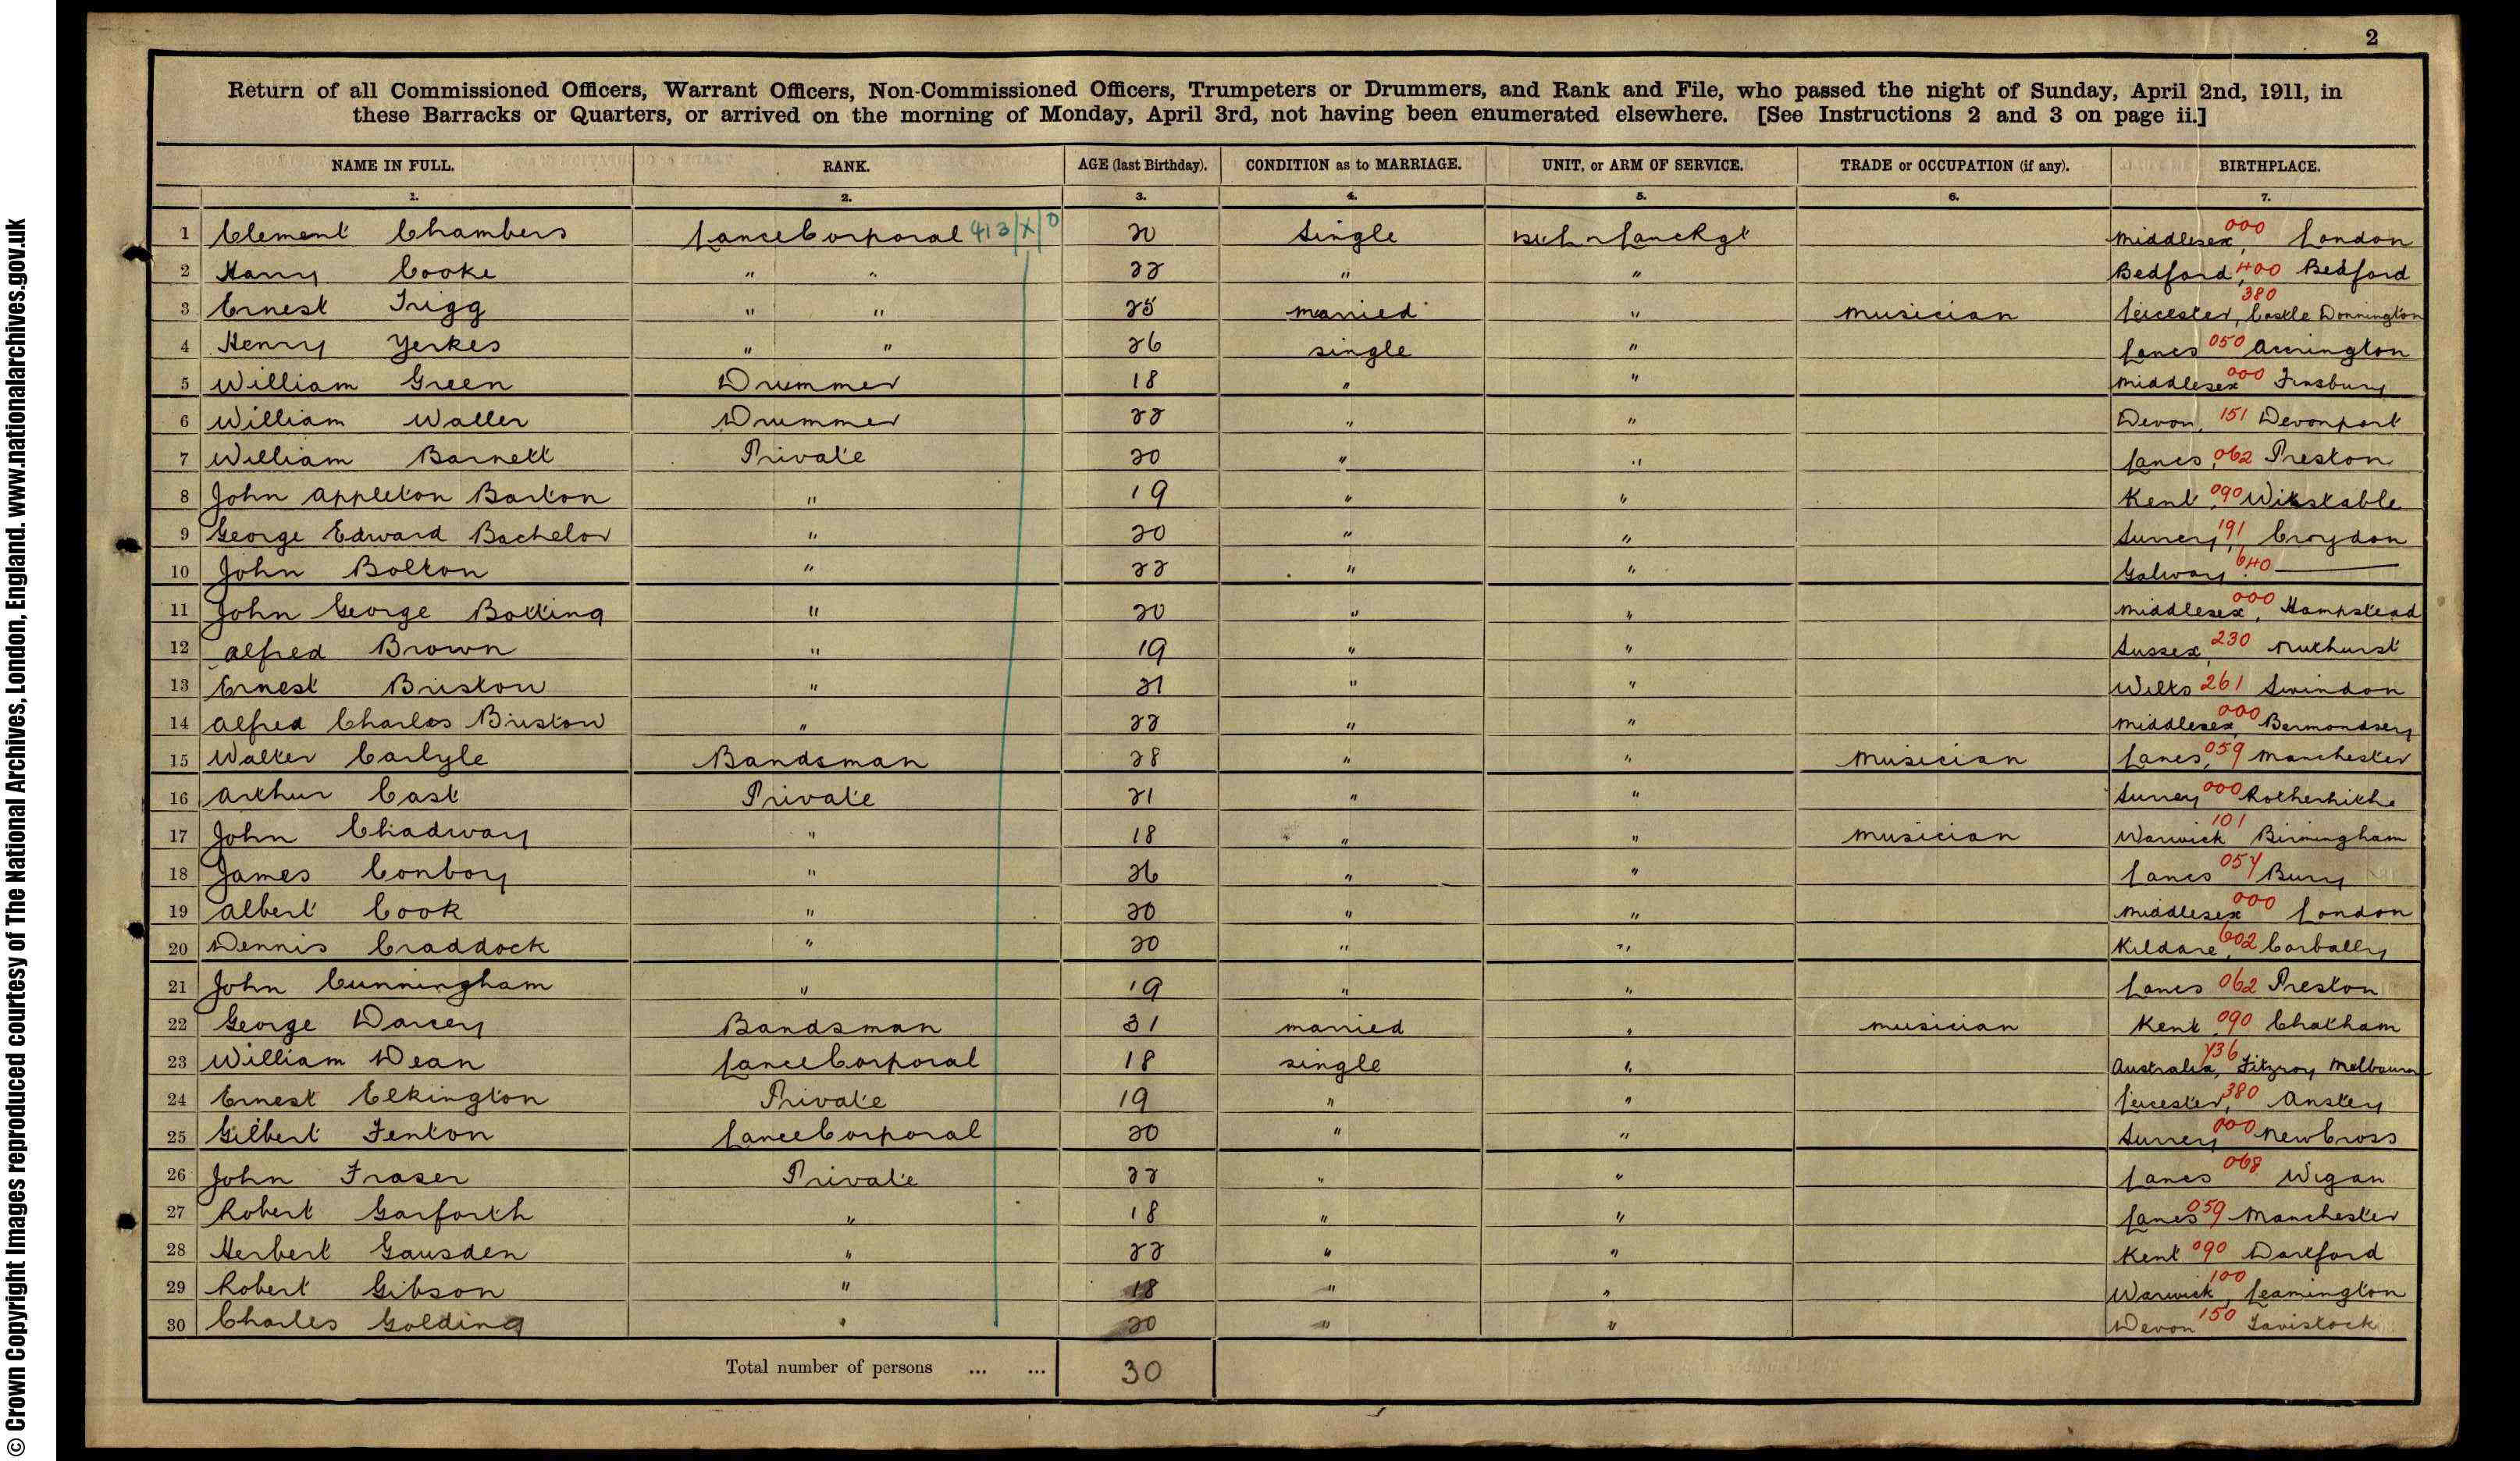 2
Return of all Commissioned Officers, Warrant Officers, Non-Commissioned Officers, Trumpeters or Drummers, and Rank and File, who passed the night of Sunday, April 2nd, 1911, in
these Barracks or Quarters, or arrived on the morning of Monday, April 3rd, not having been enumerated elsewhere. [See Instructions 2 and 3 on page ii.]
NAME IN FULL. RANK. AGE (last Birthday). CONDITION as to MARRIAGE. UNIT, or ARM OF SERVICE. TRADE or OCCUPATION (if any). BIRTHPLACE.
1. 2. 3. 4. 5. 6. 7.
1 Clement Chambers Lance Corporal 413/X/0 20 Single Lanc Rgt Middlesex, 000 London
2 Harry Cooke " " 22 " " Bedford, 400 Bedford
3 Ernest Trigg " " 25 married " musician Leicester, 380 Castle Donnington
4 Henry Yerkes " " 26 single " Lancs 050 Accrington
5 William Green Drummer 18 " " Middlesex 000 Finsbury
6 William Waller Drummer 22 " " Devon, 151 Devonport
7 William Barnett Private 20 " " Lancs, 062 Preston
8 John Appleton Barton " 19 " " Kent 090 Witstable
9 George Edward Bachelor " 20 " " Surrey 191 Croydon
10 John Bolton " 22 " " Galway 640
11 John George Botting " 20 " " Middlesex, 000 Hampstead
12 Alfred Brown " 19 " " Sussex, 230 Nuthurst
13 Ernest Bristow " 21 " " Wilts 261 Swindon
14 Alfred Charles Bristow " 22 " " Middlesex, 000 Bermondsey
15 Walter Carlyle Bandsman 28 " " musician Lancs, 059 Manchester
16 Arthur Cast Private 21 " " Surrey 000 Rotherhithe
17 John Chadway " 18 " " musician Warwick 101 Birmingham
18 James Conboy " 26 " " Lancs 054 Bury
19 Albert Cook " 20 " " Middlesex 000 London
20 Dennis Craddock " 20 " " Kildare, 602 Corbally
21 John Cunningham " 19 " " Lancs 062 Preston
22 George Darcey Bandsman 31 married " musician Kent 090 Chatham
23 William Dean Lance Corporal 18 single " Australia, 736 Fitzroy Melbourne
24 Ernest Elkington Private 19 " " Leicester, 380 Anstey
25 Gilbert Fenton Lance Corporal 20 " " Surrey 000 New Cross
26 John Fraser Private 22 " " Lancs 068 Wigan
27 Robert Garforth " 18 " " Lancs 059 Manchester
28 Herbert Gausden " 22 " " Kent 090 Dartford
29 Robert Gibson " 18 " " Warwick, 100 Leamington
30 Charles Golding " 20 " " Devon 150 Tavistock
Total number of persons ... ... 30
© Crown Copyright Images reproduced courtesy of The National Archives, London, England. www.nationalarchives.gov.uk